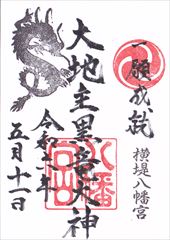 一願成就
横堤八幡宮
大地主黒竜大神
令和 年
五月十一日
八幡
宮印